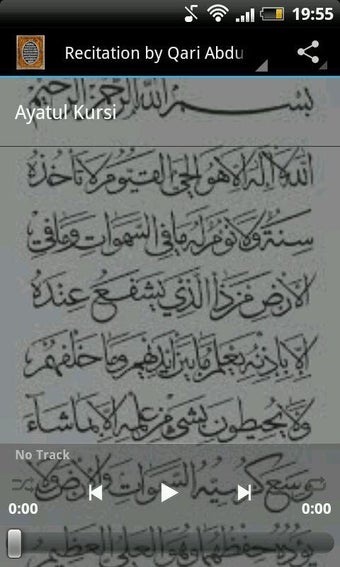 19:55
Recitation by Qari Abdu
بسم الله الرحمن الرحيم
Ayatul Kursi
الله لا إله إلا هو الحي القيوم لا تأخذه
سنة ولا نوم له ما في السموات وما في
الأرض من ذا الذي يشفع عنده
إلا بإذنه يعلم ما بين أيديهم وما خلفهم
ولا يحيطون بشيء من علمه إلا بما شاء
No Track
وسع كرسيه السموات والأرض ولا
0:00
0:00
يؤده حفظهما وهو العلي العظيم